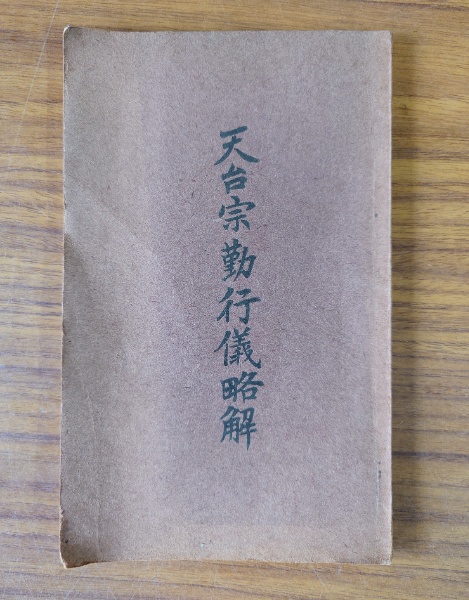 天台宗勤行儀略解